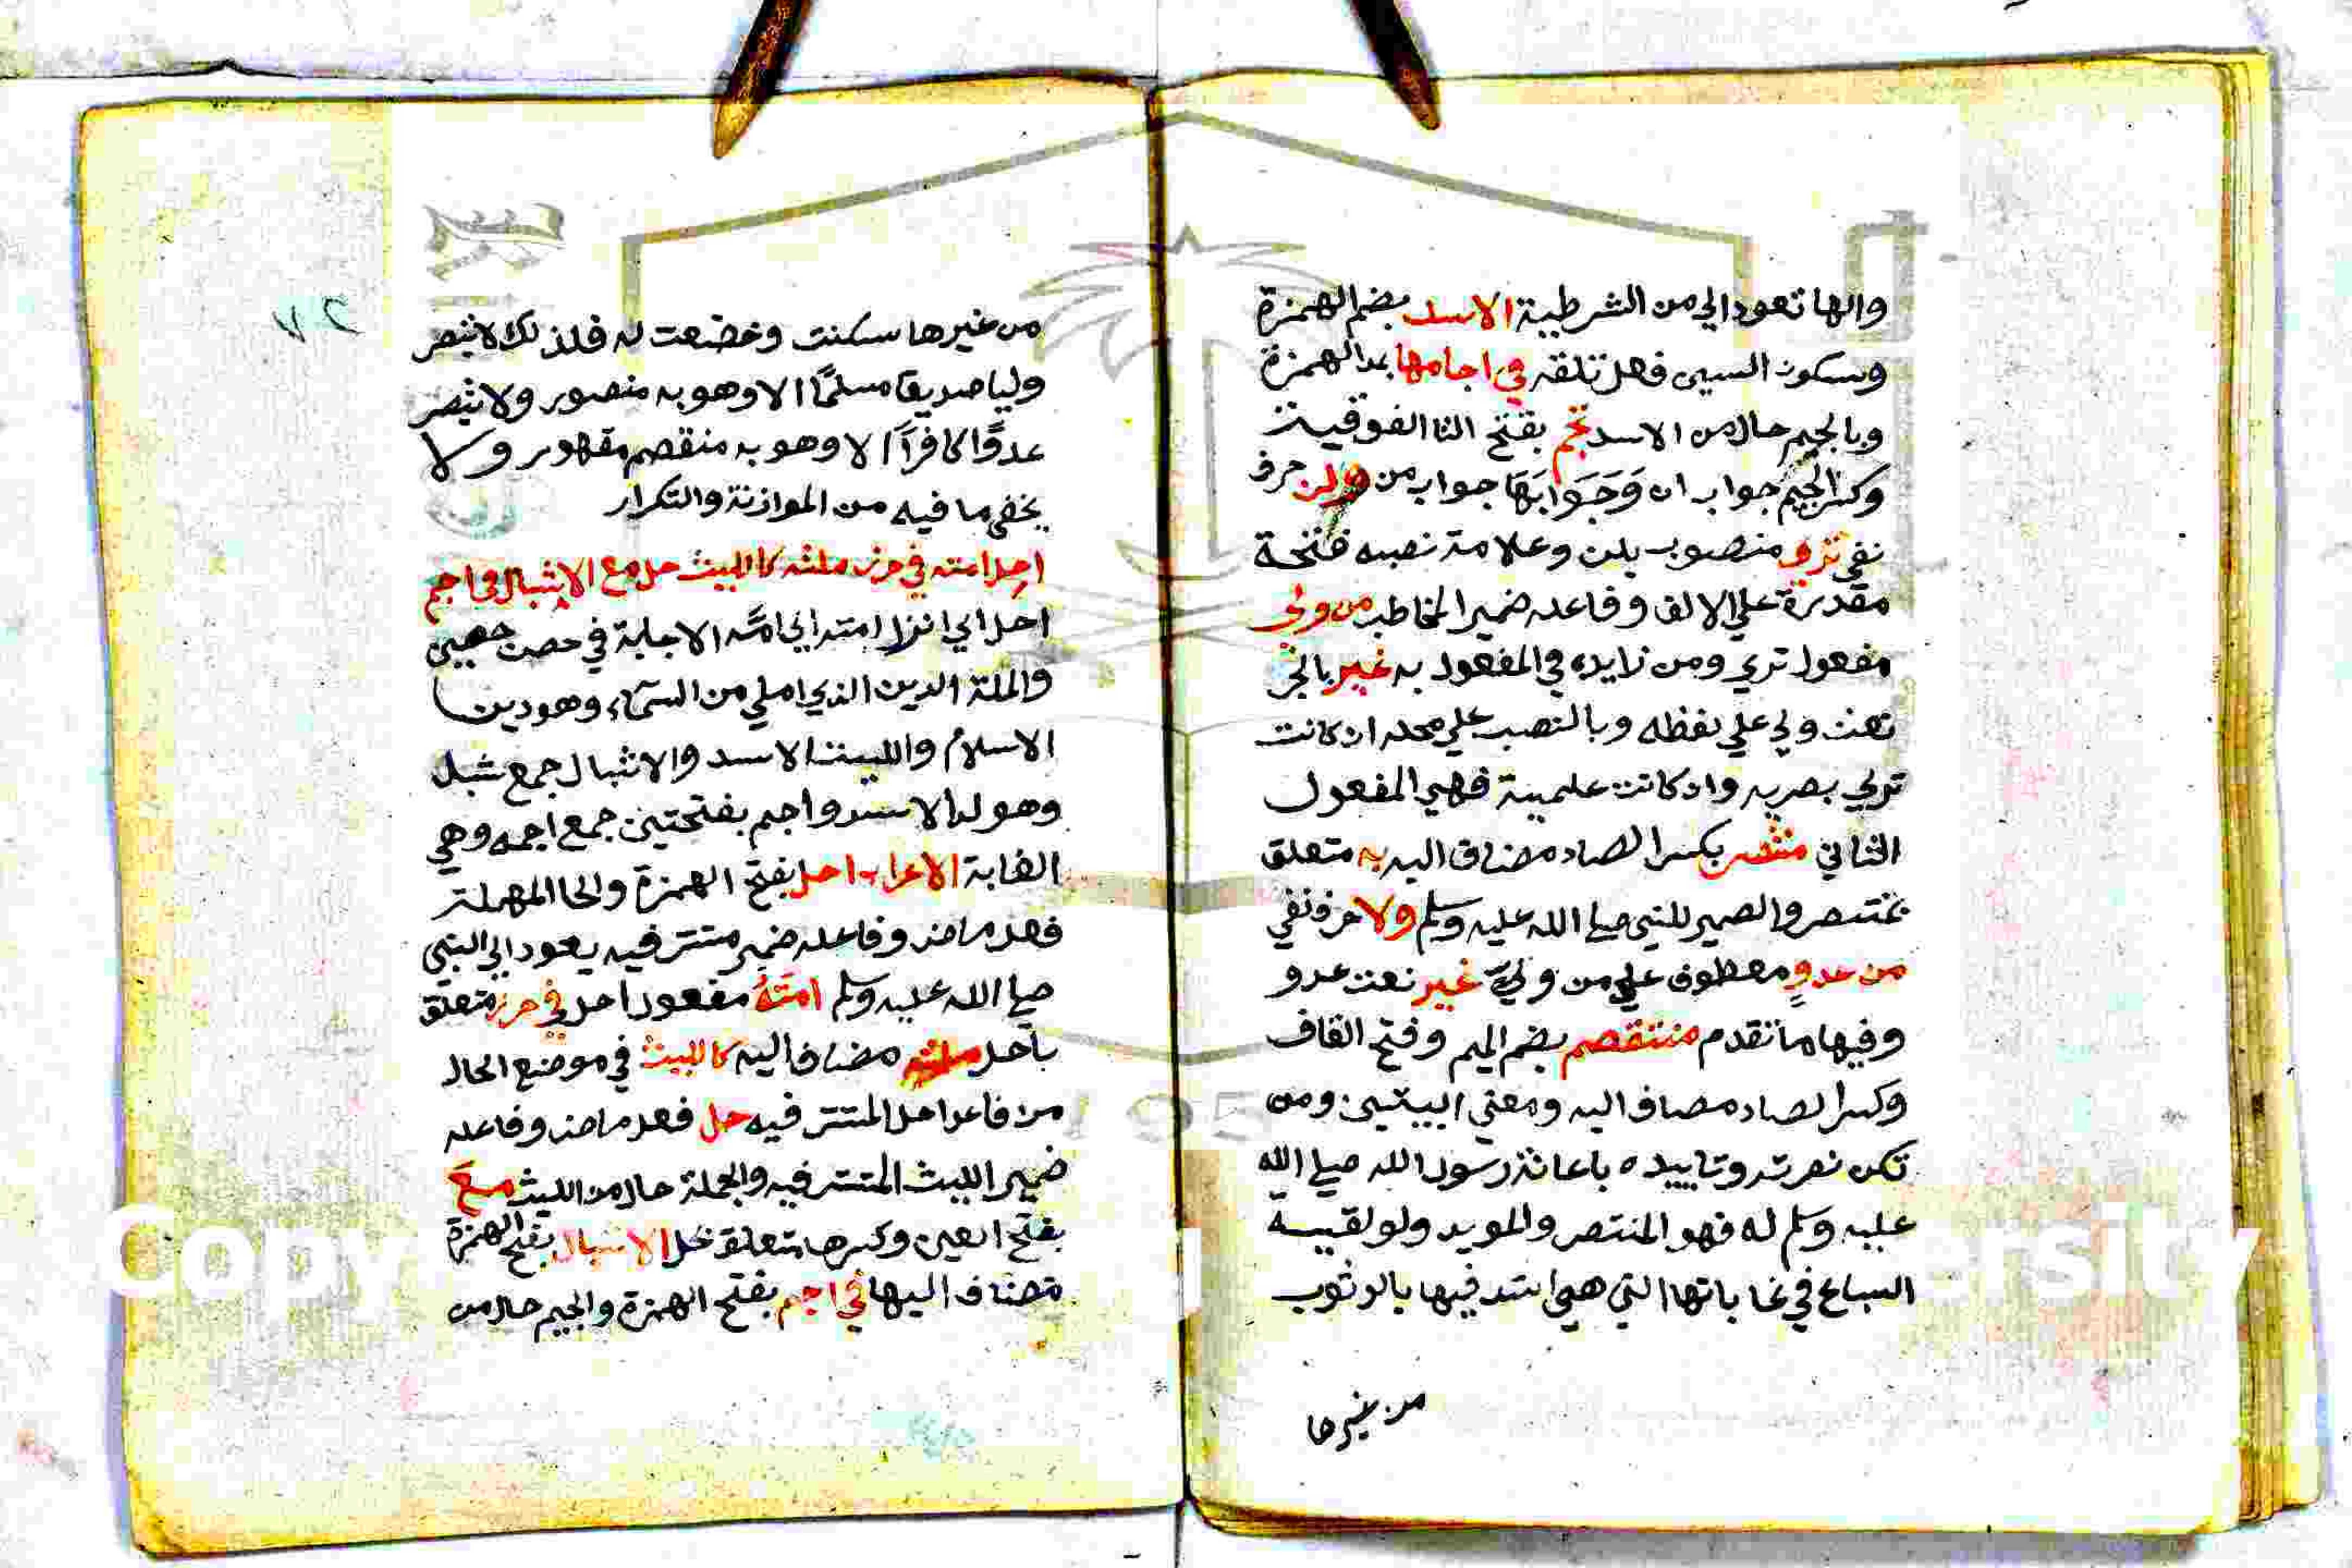 والها تعود الي من الشرطية الاسد بضم الهمزة
وسكون السين فعل تلقه في اجامها بمد الهمزة
وبالجيم حال من الاسد تجم بفتح التا الفوقية
وكسر الجيم جواب ان وَجَوَابَهَا جواب من ولن حرف
نفي تري منصوب بلن وعلامة نصبه فتحة
مقدرة علي الالف وفاعله ضمير المخاطب من ولي
مفعول تري ومن زايده في المفعول به غير بالجر
نعت ولي علي لفظه وبالنصب علي محله ان كانت
تري بصريه وان كانت علمية فهي المفعول
الثاني منتصر بكسر الصاد مضاف اليه به متعلق
بمنتصر والضمير للنبي صلي الله عليه وسلم ولا حرف نفي
من عدوٍ معطوف علي من وليّ غير نعت عدو
وفيها ما تقدم منتقصم بضم الميم وفتح القاف
وكسر الصاد مضاف اليه ومعني البيتين ومن
تكن نصرته وتاييده باعانة رسول الله صلي الله
عليه وسلم له فهو المنتصر والمويد ولو لقيه
السباع في غاباتها التي هي اشد فيها بالوثوب
من غيرها
٢٧
من غيرها سكنت وخضعت له فلذلك لا تبصر
وليا صديقا مسلمًا الا وهو به منصور ولا تبصر
عدوًا كافرًا الا وهو به منقصم مقهور ولا
يخفي ما فيه من الموازنة والتكرار
احل امته في حرز ملته كالليث حل مع الاشبال في اجم
احل اي انزل امته اي امّه الاجابة في حصن حصين
والملة الدين الذي املي من السّماء وهو دين
الاسلام والليث الاسد والاشبال جمع شبل
وهو ولد الاسد واجم بفتحتين جمع اجمه وهي
الغابة الاعراب احل بفتح الهمزة والحا المهملة
فعل ماض وفاعله ضمير مستتر فيه يعود الي النبي
صلي الله عليه وسلم امتَهُ مفعول احل في حرز متعلق
باحل ملته مضاف اليه كالليث في موضع الحال
من فاعل احل المستتر فيه حل فعل ماض وفاعله
ضمير الليث المستتر فيه والجملة حال من الليث معَ
بفتح العين وكسرها متعلق بحل الاشبال بفتح الهمزة
مضاف اليها في اجم بفتح الهمزة والجيم حال من